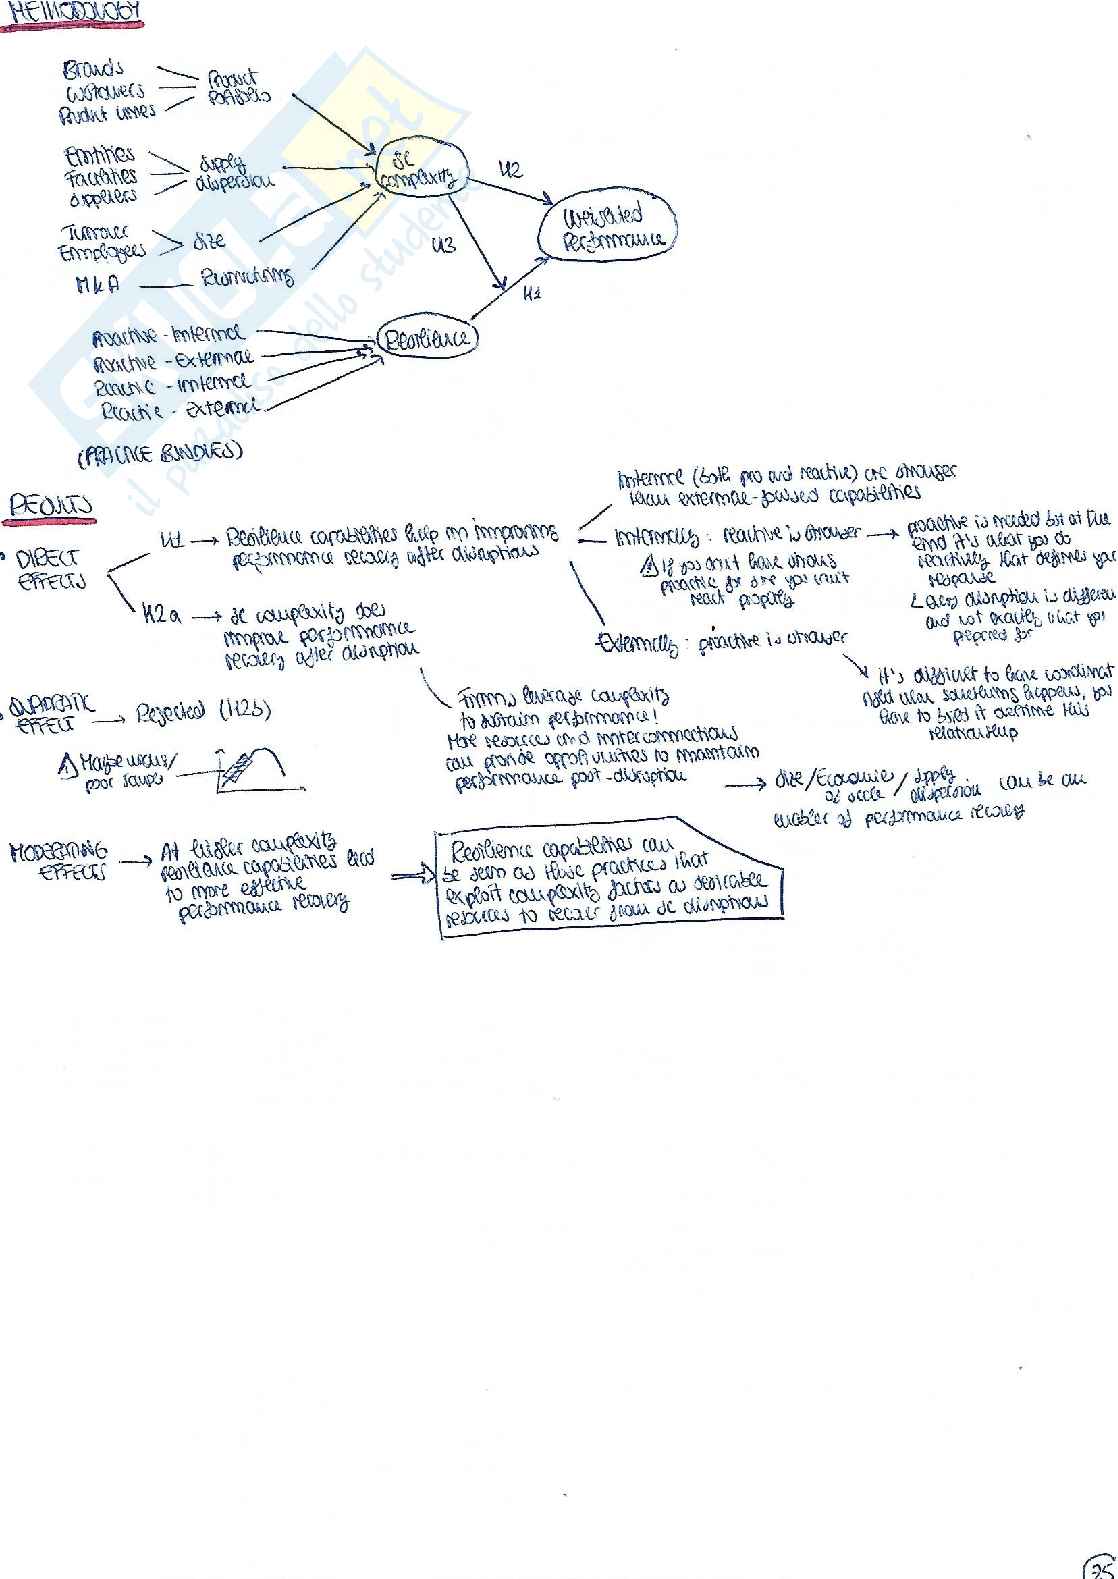 METHODOLOGY
Brands
Customers
Product lines
Product
portfolio
Entities
Facilities
Suppliers
Supply
dispersion
Turnover
Employees
Size
M&A
Restructuring
SC
complexity
H2
Weighted
Performance
H3
H1
Resilience
Proactive - Internal
Proactive - External
Reactive - Internal
Reactive - External
(PRACTICE BUNDLES)
SKUOLA.not
il paradiso dello studente
RESULTS
DIRECT
EFFECTS
H1 → Resilience capabilities help in improving
performance recovery after disruptions
Internal (both pro and reactive) are stronger
than external-focused capabilities
Internally: reactive is stronger →
⚠ If you don't have
practice you can't
react properly
proactive is needed but at the
end it's what you do
reactively that defines your
response
every disruption is different
and not exactly what you
prepared for
Externally: proactive is stronger
it's difficult to have
when something happens, you
have to build it overtime this
relationship
H2a → SC complexity does
improve performance
recovery after disruption
Firms leverage complexity
to sustain performance!
More resources and interconnections
can provide opportunities to maintain
performance post-disruption
→ Size/Economies
of scale / supply
dispersion can be an
enabler of performance recovery
QUADRATIC
EFFECT → Rejected (H2b)
⚠ Maybe wrong/
poor sample
MODERATING
EFFECTS → At higher complexity
resilience capabilities lead
to more effective
performance recovery
Resilience capabilities can
be seen as those practices that
exploit complexity factors as desirable
resources to recover from SC disruptions
25